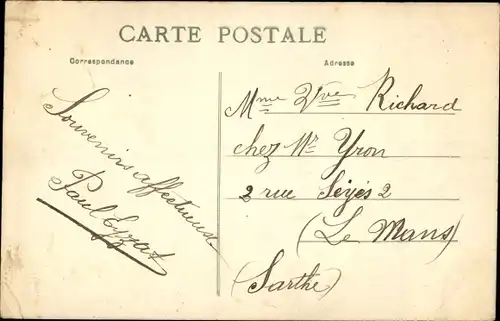 CARTE POSTALE
Correspondance
Souvenirs affectueux
Paul
Adresse
Mme Vve Richard
chez Mr Yron
2 rue Séyès 2
(Le Mans)
(Sarthe)